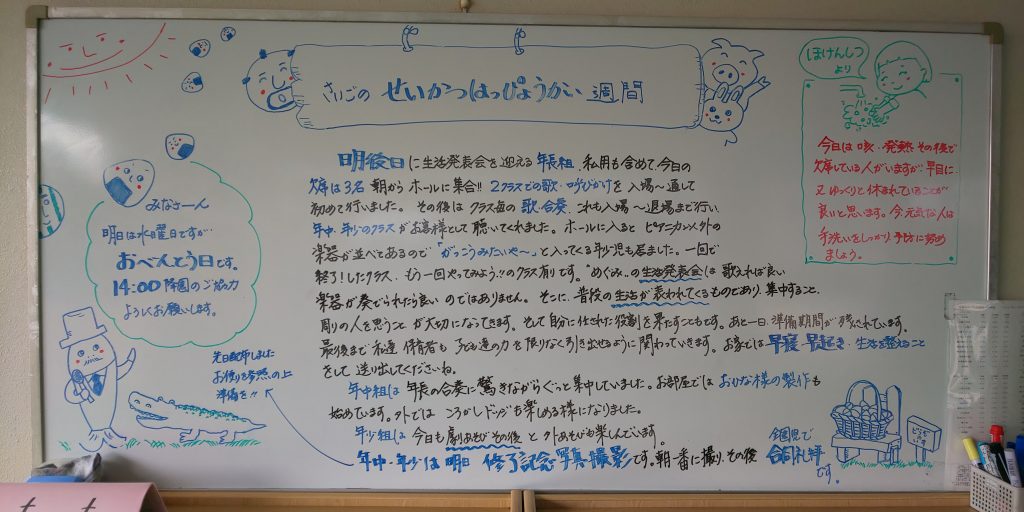 さいごの せいかつはっぴょうかい 週間
ほけんしつ
より
今日は咳・発熱、その後で
欠席している人がいますが、早目に
又ゆっくりと休まれていることが
良いと思います。今元気な人は
手洗いをしっかり、予防に努め
ましょう。
みなさーん
明日は水曜日ですが
おべんとう日です。
14:00 降園のご協力
よろしくお願いします。
先日配布しました
お便りを参照の上
準備を!!
明後日に生活発表会を迎える年長組、私用も含めて今日の
欠席は3名 朝からホールに集合!! 2クラスでの歌・呼びかけを入場〜通して
初めて行いました。その後はクラス毎の歌・合奏、これも入場〜退場まで行い
年中・年少のクラスがお客様として聴いてくれました。ホールに入るとピアニカ以外の
楽器が並べてあるので「がっこうみたいや〜」と入ってくる年少児も居ました。一回で
終了!したクラス、もう一回やってみよう!!のクラス有りです。"めぐみ"の生活発表会は歌えれば良い
楽器が奏でられたら良いのではありません。そこに、普段の生活が表われてくるものであり、集中すること、
周りの人を思うことが大切になってきます。そして自分に任された役割を果たすこともです。あと一日、準備期間が残されています。
最後まで私達保育者も子ども達の力を限りなく引き出せるように関わっていきます。お家では早寝・早起き・生活を整えること
をして送り出してくださいね。
年中組は年長の合奏に驚きながらぐっと集中していました。お部屋ではおひな様の製作も
始めています。外ではころがしドッジも楽しめる様になりました。
年少組は今日も劇あそび その後と外あそびも楽しんでいます。
年中・年少は明日 修了記念写真撮影です。朝一番に撮り、その後
全園児で
合同礼拝
です。